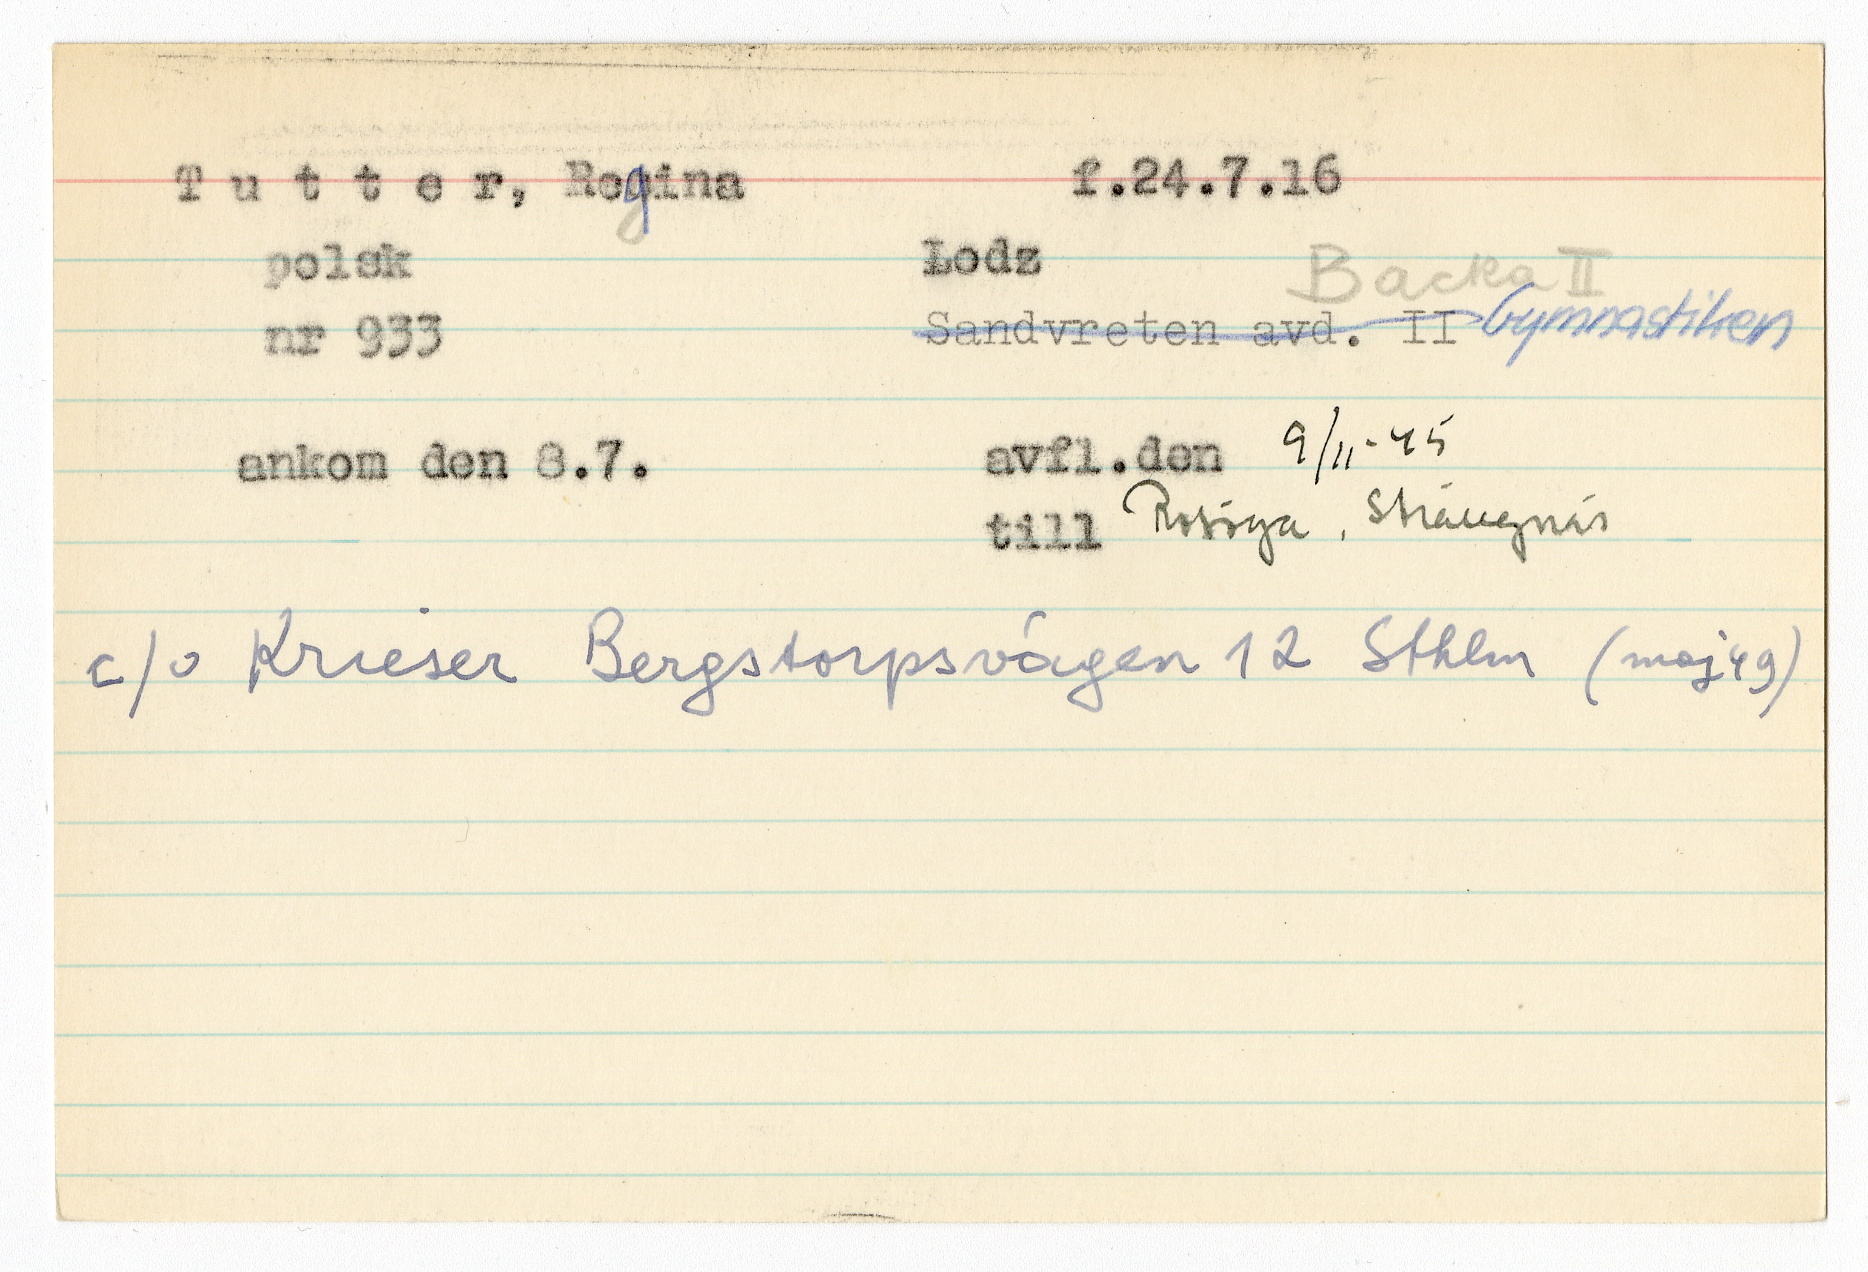 Tutter, Regina f.24.7.16
polsk Łodz Backa II
nr 933 Sandvreten avd. II Gymnastiken
ankom den 8.7. avfl.den 9/11-45
till Rosöga, Strängnäs
c/o Krieser Bergstorpsvägen 12 Sthlm (maj 49)